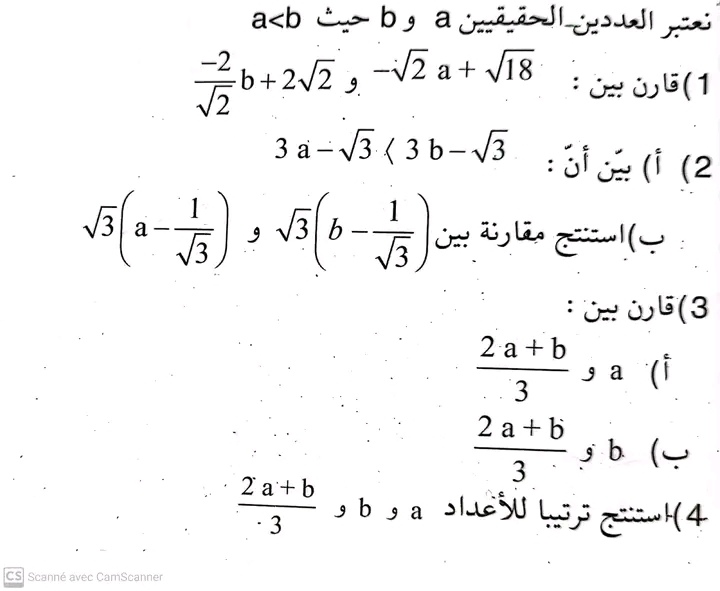 نعتبر العددين الحقيقيين a و b حيث a<b
1) قارن بين : $-\sqrt{2}\,a+\sqrt{18}$ و $\frac{-2}{\sqrt{2}}b+2\sqrt{2}$
2) أ) بيّن أنّ : $3a-\sqrt{3} \langle 3b-\sqrt{3}$
ب) استنتج مقارنة بين $\sqrt{3}\left(b-\frac{1}{\sqrt{3}}\right)$ و $\sqrt{3}\left(a-\frac{1}{\sqrt{3}}\right)$
3) قارن بين :
أ) a و $\frac{2a+b}{3}$
ب) b و $\frac{2a+b}{3}$
4) استنتج ترتيبا للأعداد a و b و $\frac{2a+b}{3}$
CS Scanné avec CamScanner